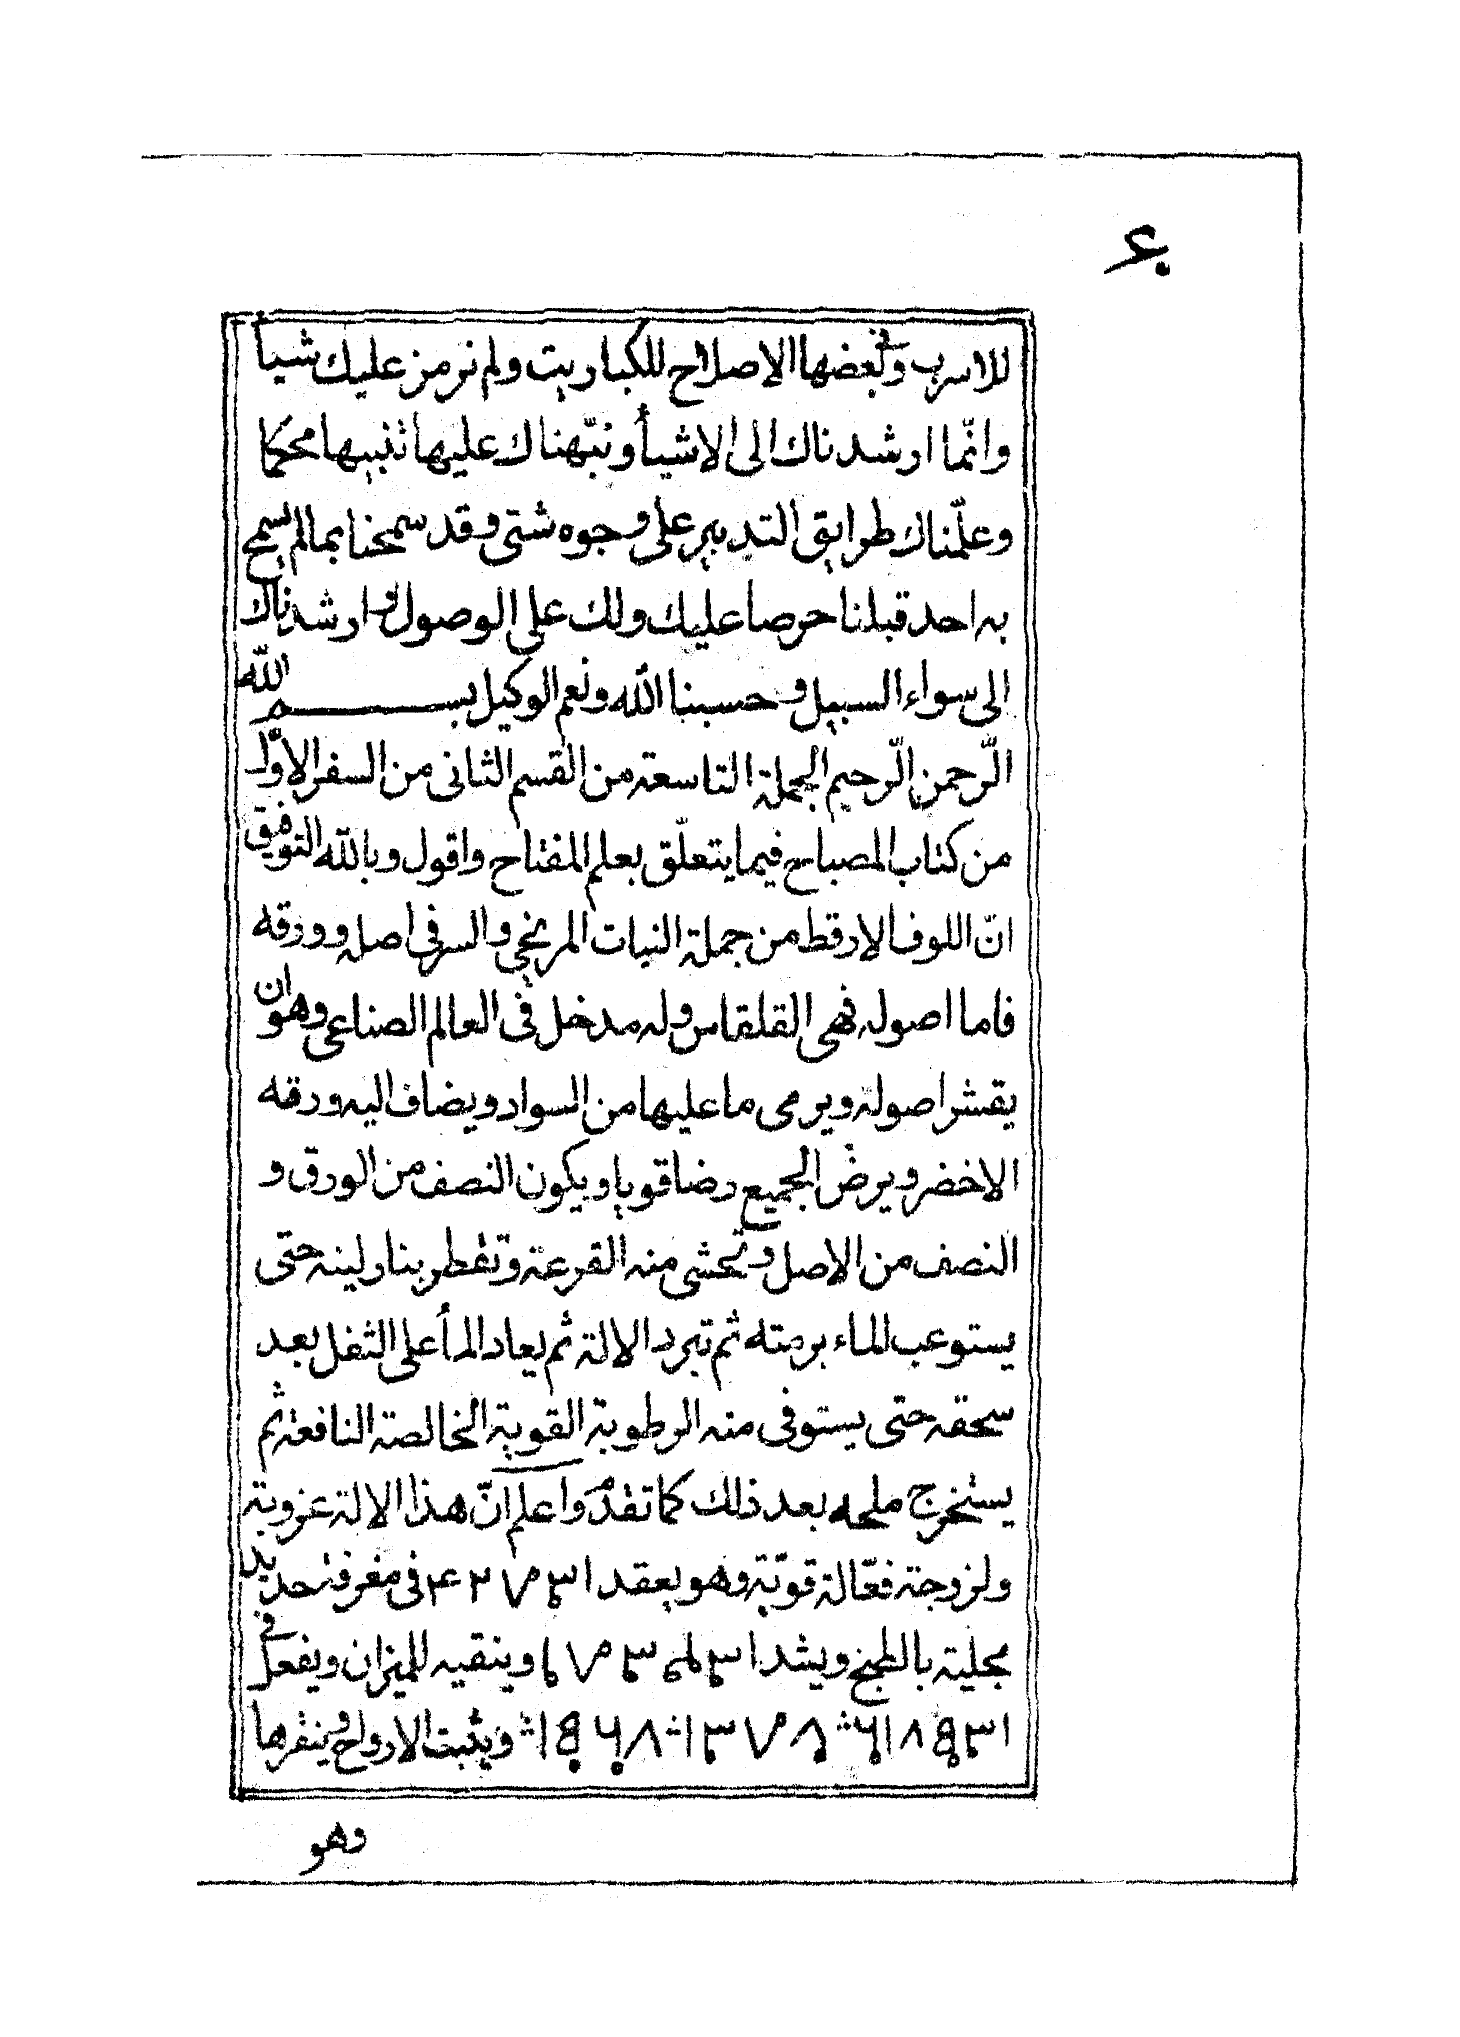 للاسرب وفى بعضها الاصلاح للكباريت ولم نرمز عليك شيأ
وانّما ارشدناك الى الاشيأ ونبّهناك عليها تنبيها محكما
وعلّمناك طرايق التدبير على وجوه شتى وقد سمحنا بما لم يسمح
به احد قبلنا حرصا عليك ولك على الوصول وارشدناك
الى سواء السبيل وحسبنا الله ونعم الوكيل بسم الله
الرّحمن الرّحيم الجملة التاسعة من القسم الثانى من السفر الاوّل
من كتاب المصباح فيما يتعلّق بعلم المفتاح واقول وبالله التوفيق
انّ اللوف الارقط من جملة النبات المريخى والسر فى اصله وورقه
فاما اصوله فهى القلقاس وله مدخل فى العالم الصناعى وهو ان
يقشر اصوله ويرمى ما عليها من السواد ويضاف اليه ورقه
الاخضر ويرض الجميع رضا قويا ويكون النصف من الورق و
النصف من الاصل وتحشى منه القرعة وتقطر بنار لينة حتى
يستوعب الماء برمته ثم تبرد الالة ثم يعاد المأ على الثفل بعد
سحقه حتى يستوفى منه الرطوبة القوية الخالصة النافعة ثم
يستخرج ملحه بعد ذلك كما تقدم واعلم انّ هذا الالة عزوبة
ولزوجة فعّالة قويّة وهو يعقد فى مغرفة حديد
مجلية بالطبخ ويشد وينقيه للميزان ويفعل فى
ويثبت الارواح وينفرها
وهو